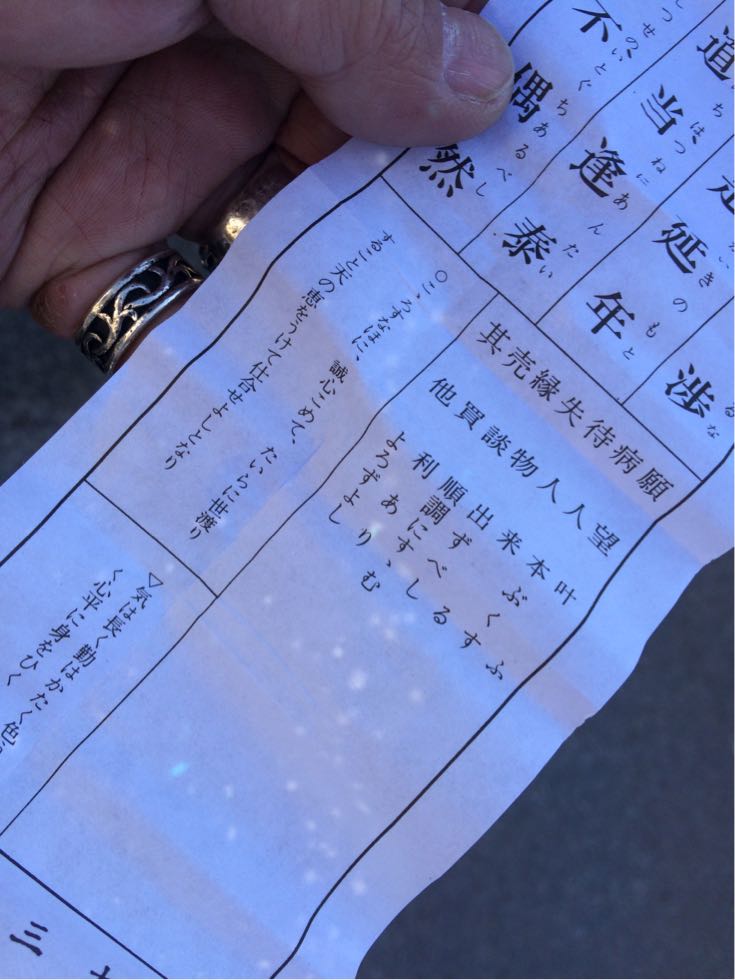 渉
延年
道当逢泰
みちはつねにあんたい
不偶然
のいとぐちあるべし
願望 叶ふ
病人 本ぶくす
待人 来る
失物 出ずべし
縁談 順調にすゝむ
売買 利あり
其他 よろずよし
○こゝろすなほに、誠心こめて、たいらに世渡り
すること天の恵をうけて仕合せよしとなり
▽気は長く勤はかたく色
く心平に身をひく
三